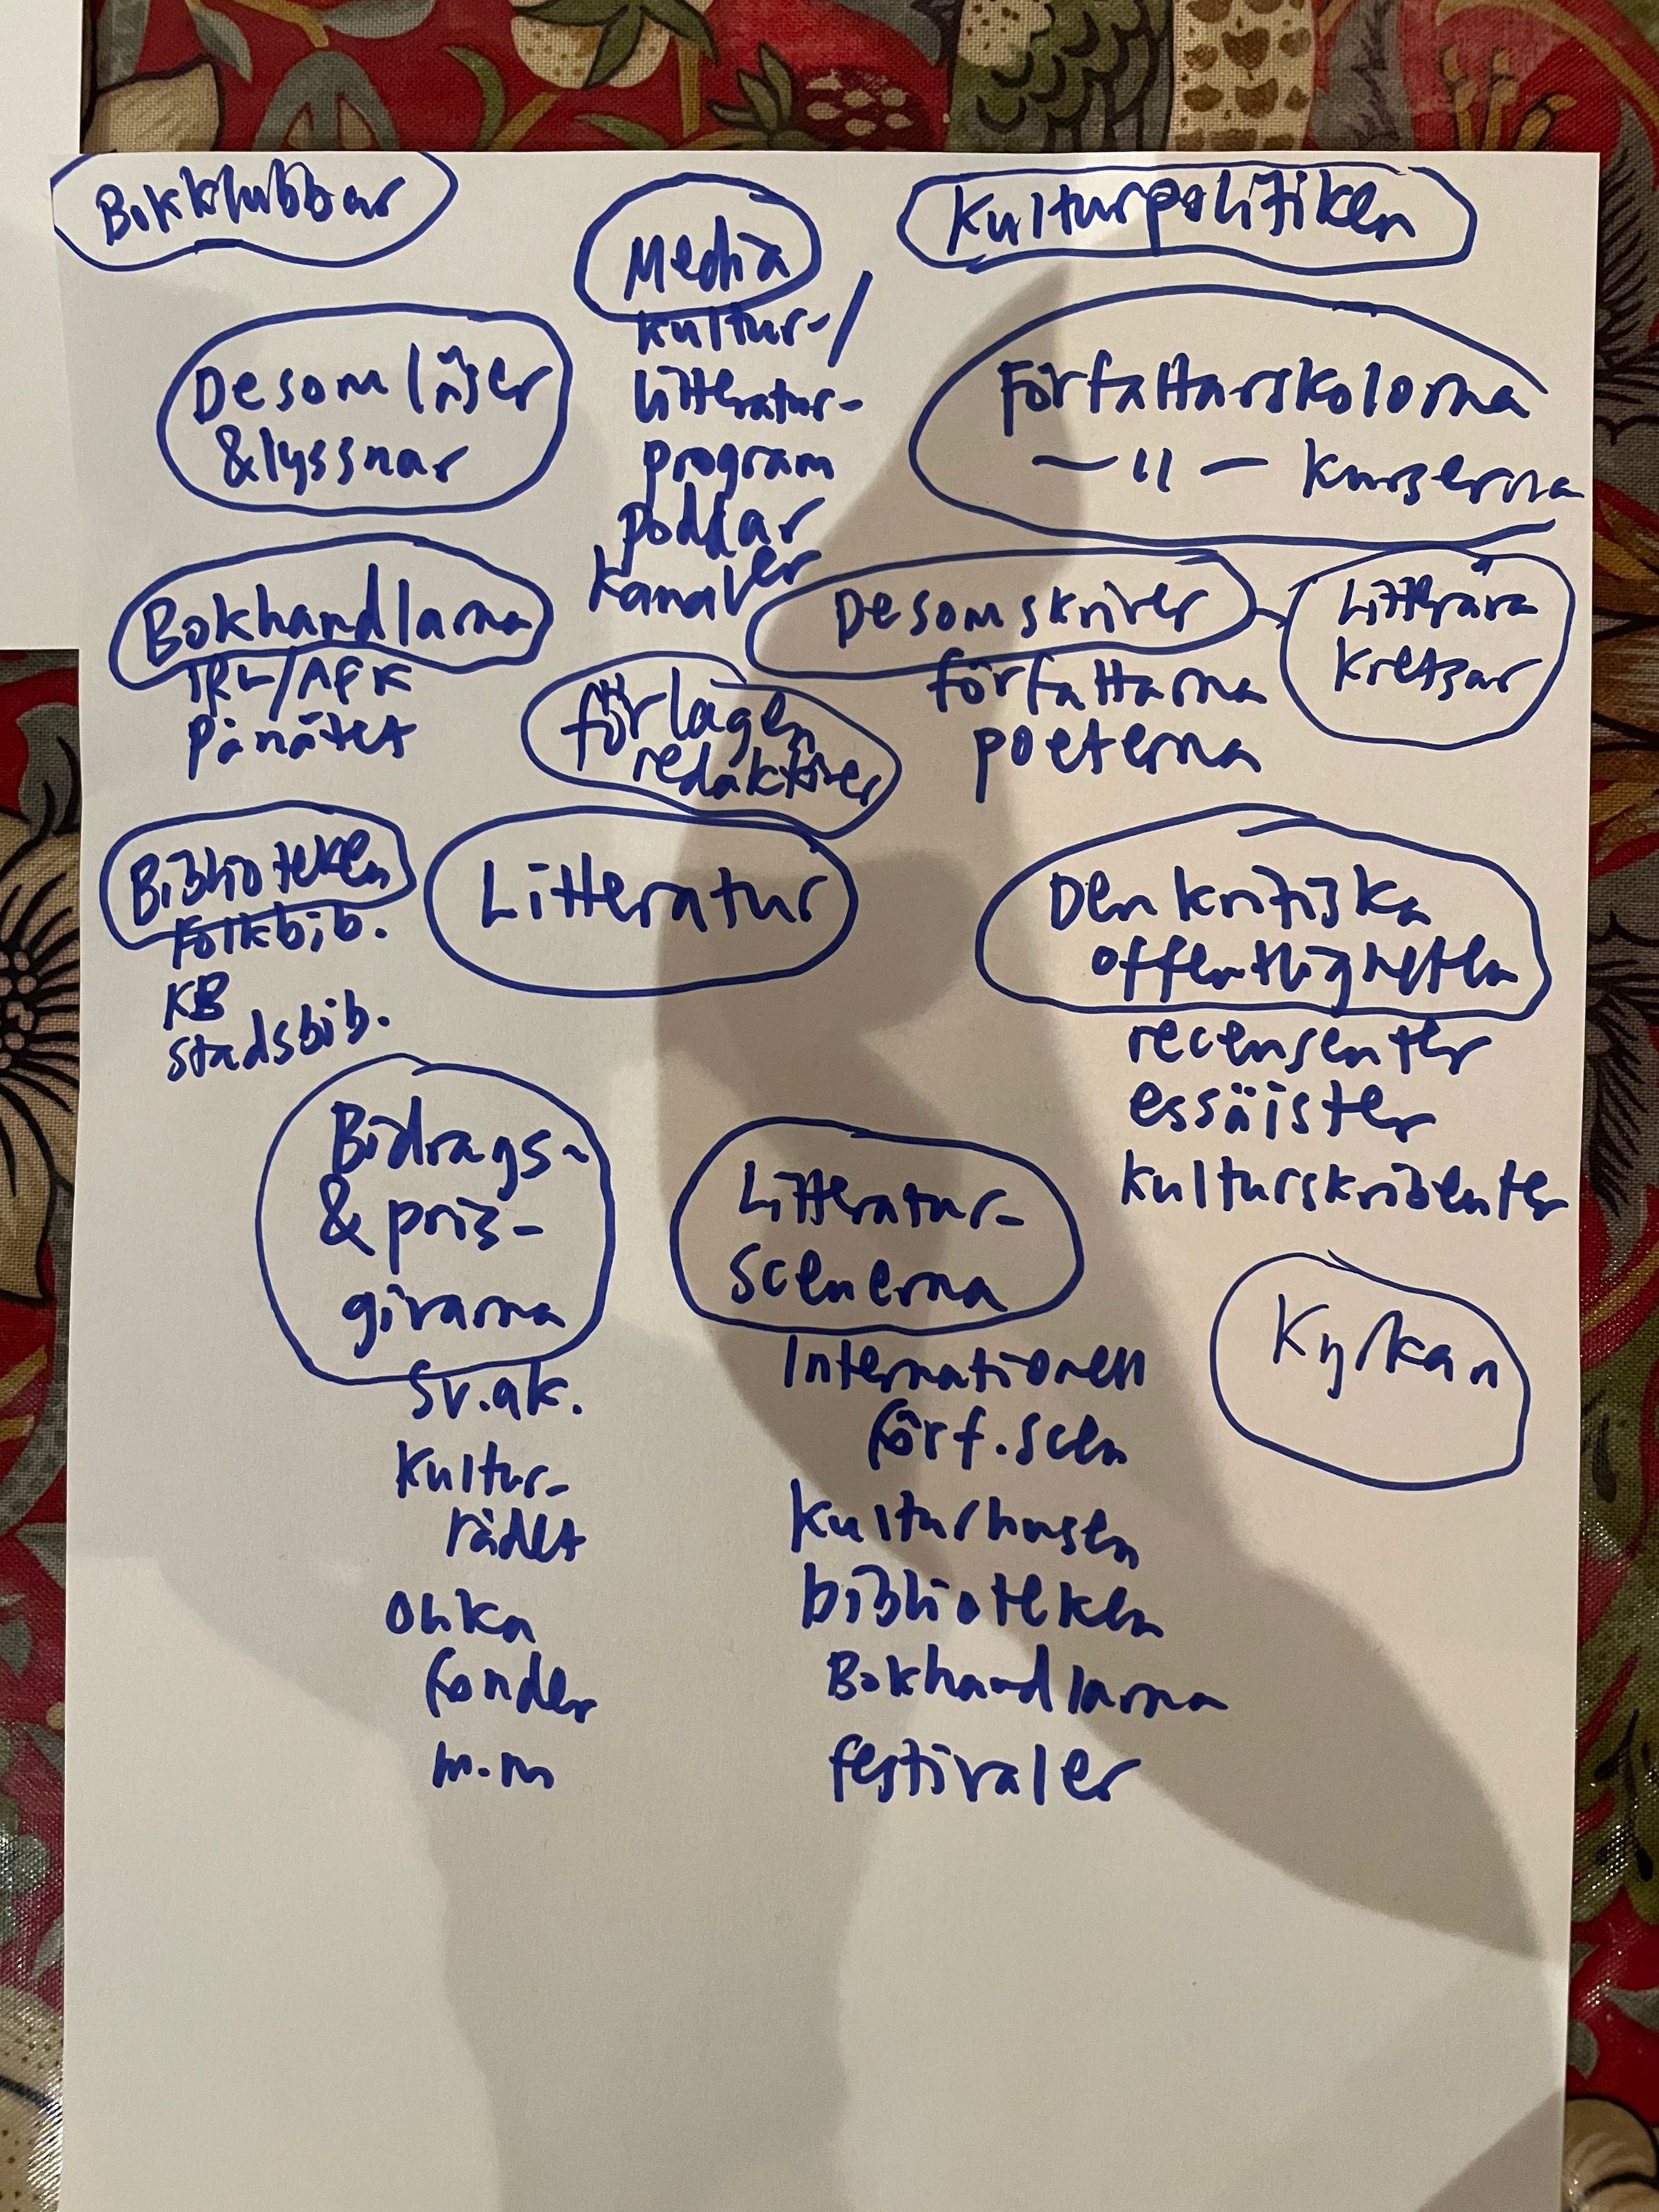 Bokklubbar
Media
kultur-/
litteratur-
program
poddar
kanaler
Kulturpolitiken
De som läser
& lyssnar
Författarskolorna
— 11 — kurserna
Bokhandlarna
IRL/AFK
På nätet
De som skriver
författarna
poeterna
Litterära
kretsar
förlagen
redaktörer
Biblioteken
Folkbib.
KB
Stadsbib.
Litteratur
Den kritiska
offentligheten
recensenter
essäister
kulturskribenter
Bidrags-
& pris-
givarna
Sv.ak.
Kultur-
rådet
Olika
fonder
m.m
Litteratur-
scenerna
Internationell
förf.scen
Kulturhusen
biblioteken
Bokhandlarna
festivaler
Kyrkan